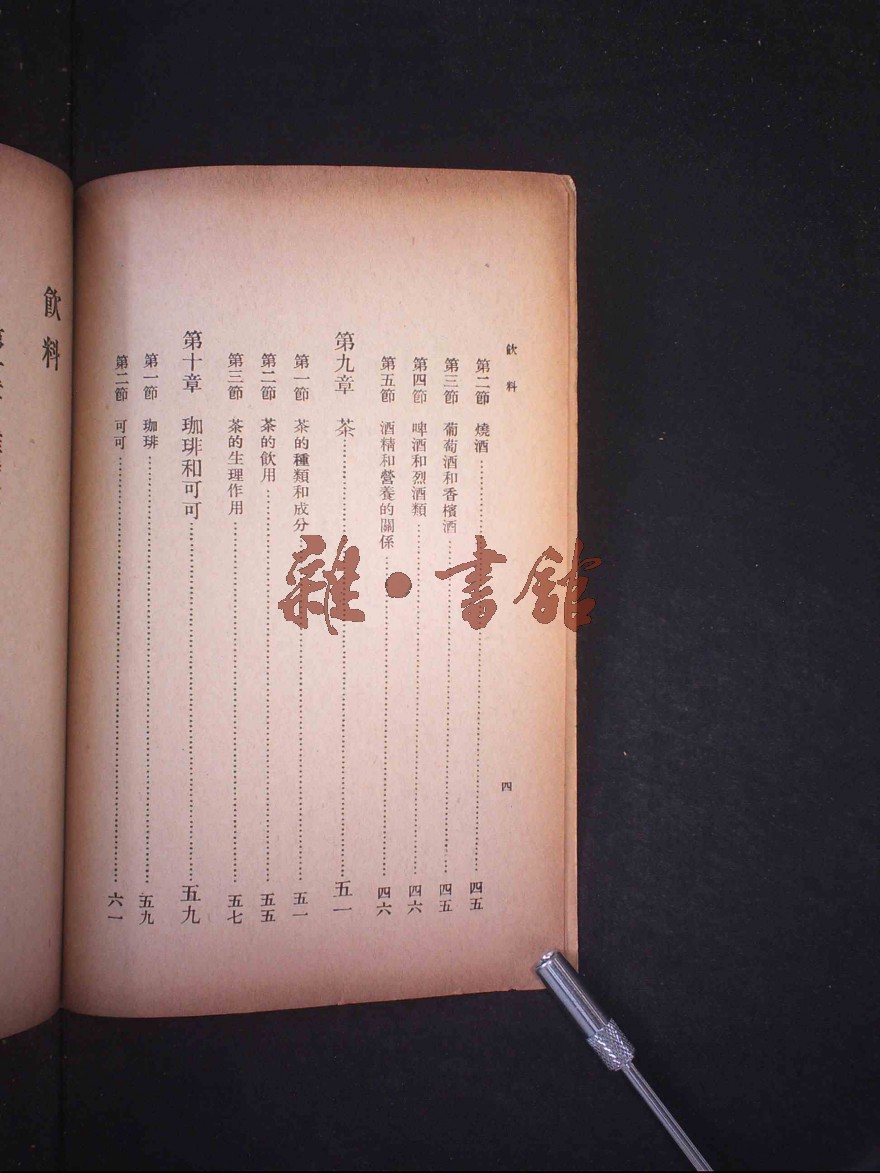 飲料
四
第二節 燒酒 四五
第三節 葡萄酒和香檳酒 四五
第四節 啤酒和烈酒類 四六
第五節 酒精和營養的關係 四六
第九章 茶 五一
第一節 茶的種類和成分 五一
第二節 茶的飲用 五五
第三節 茶的生理作用 五七
第十章 珈琲和可可 五九
第一節 珈琲 五九
第二節 可可 六一
飲料
雜·書館